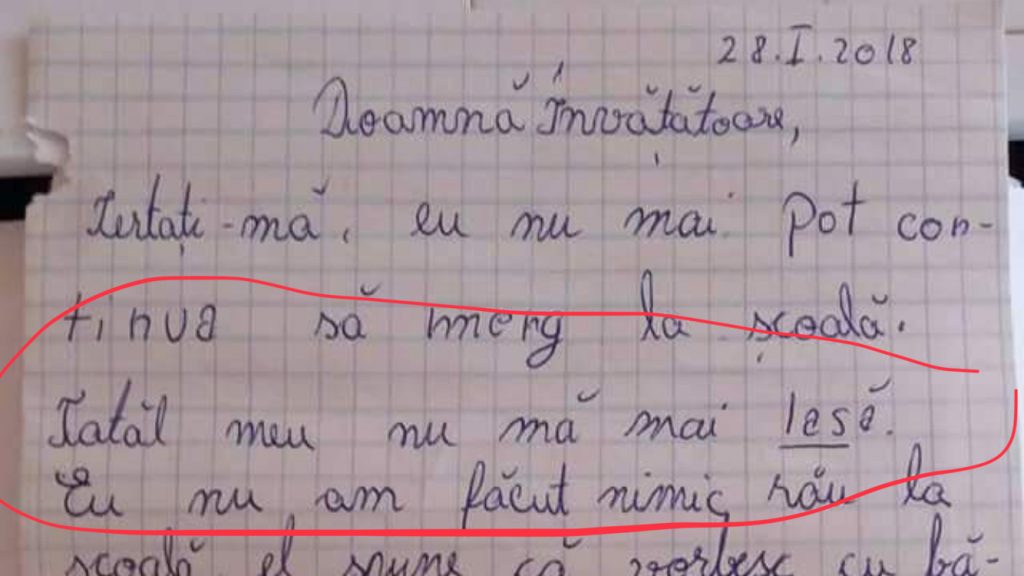 28.I.2018
Doamnă Învățătoare,
Iertați-mă, eu nu mai pot con-
tinua să merg la școală.
Tatăl meu nu mă mai lasă.
Eu nu am făcut nimic rău la
școală el spune că vorbesc cu bă-